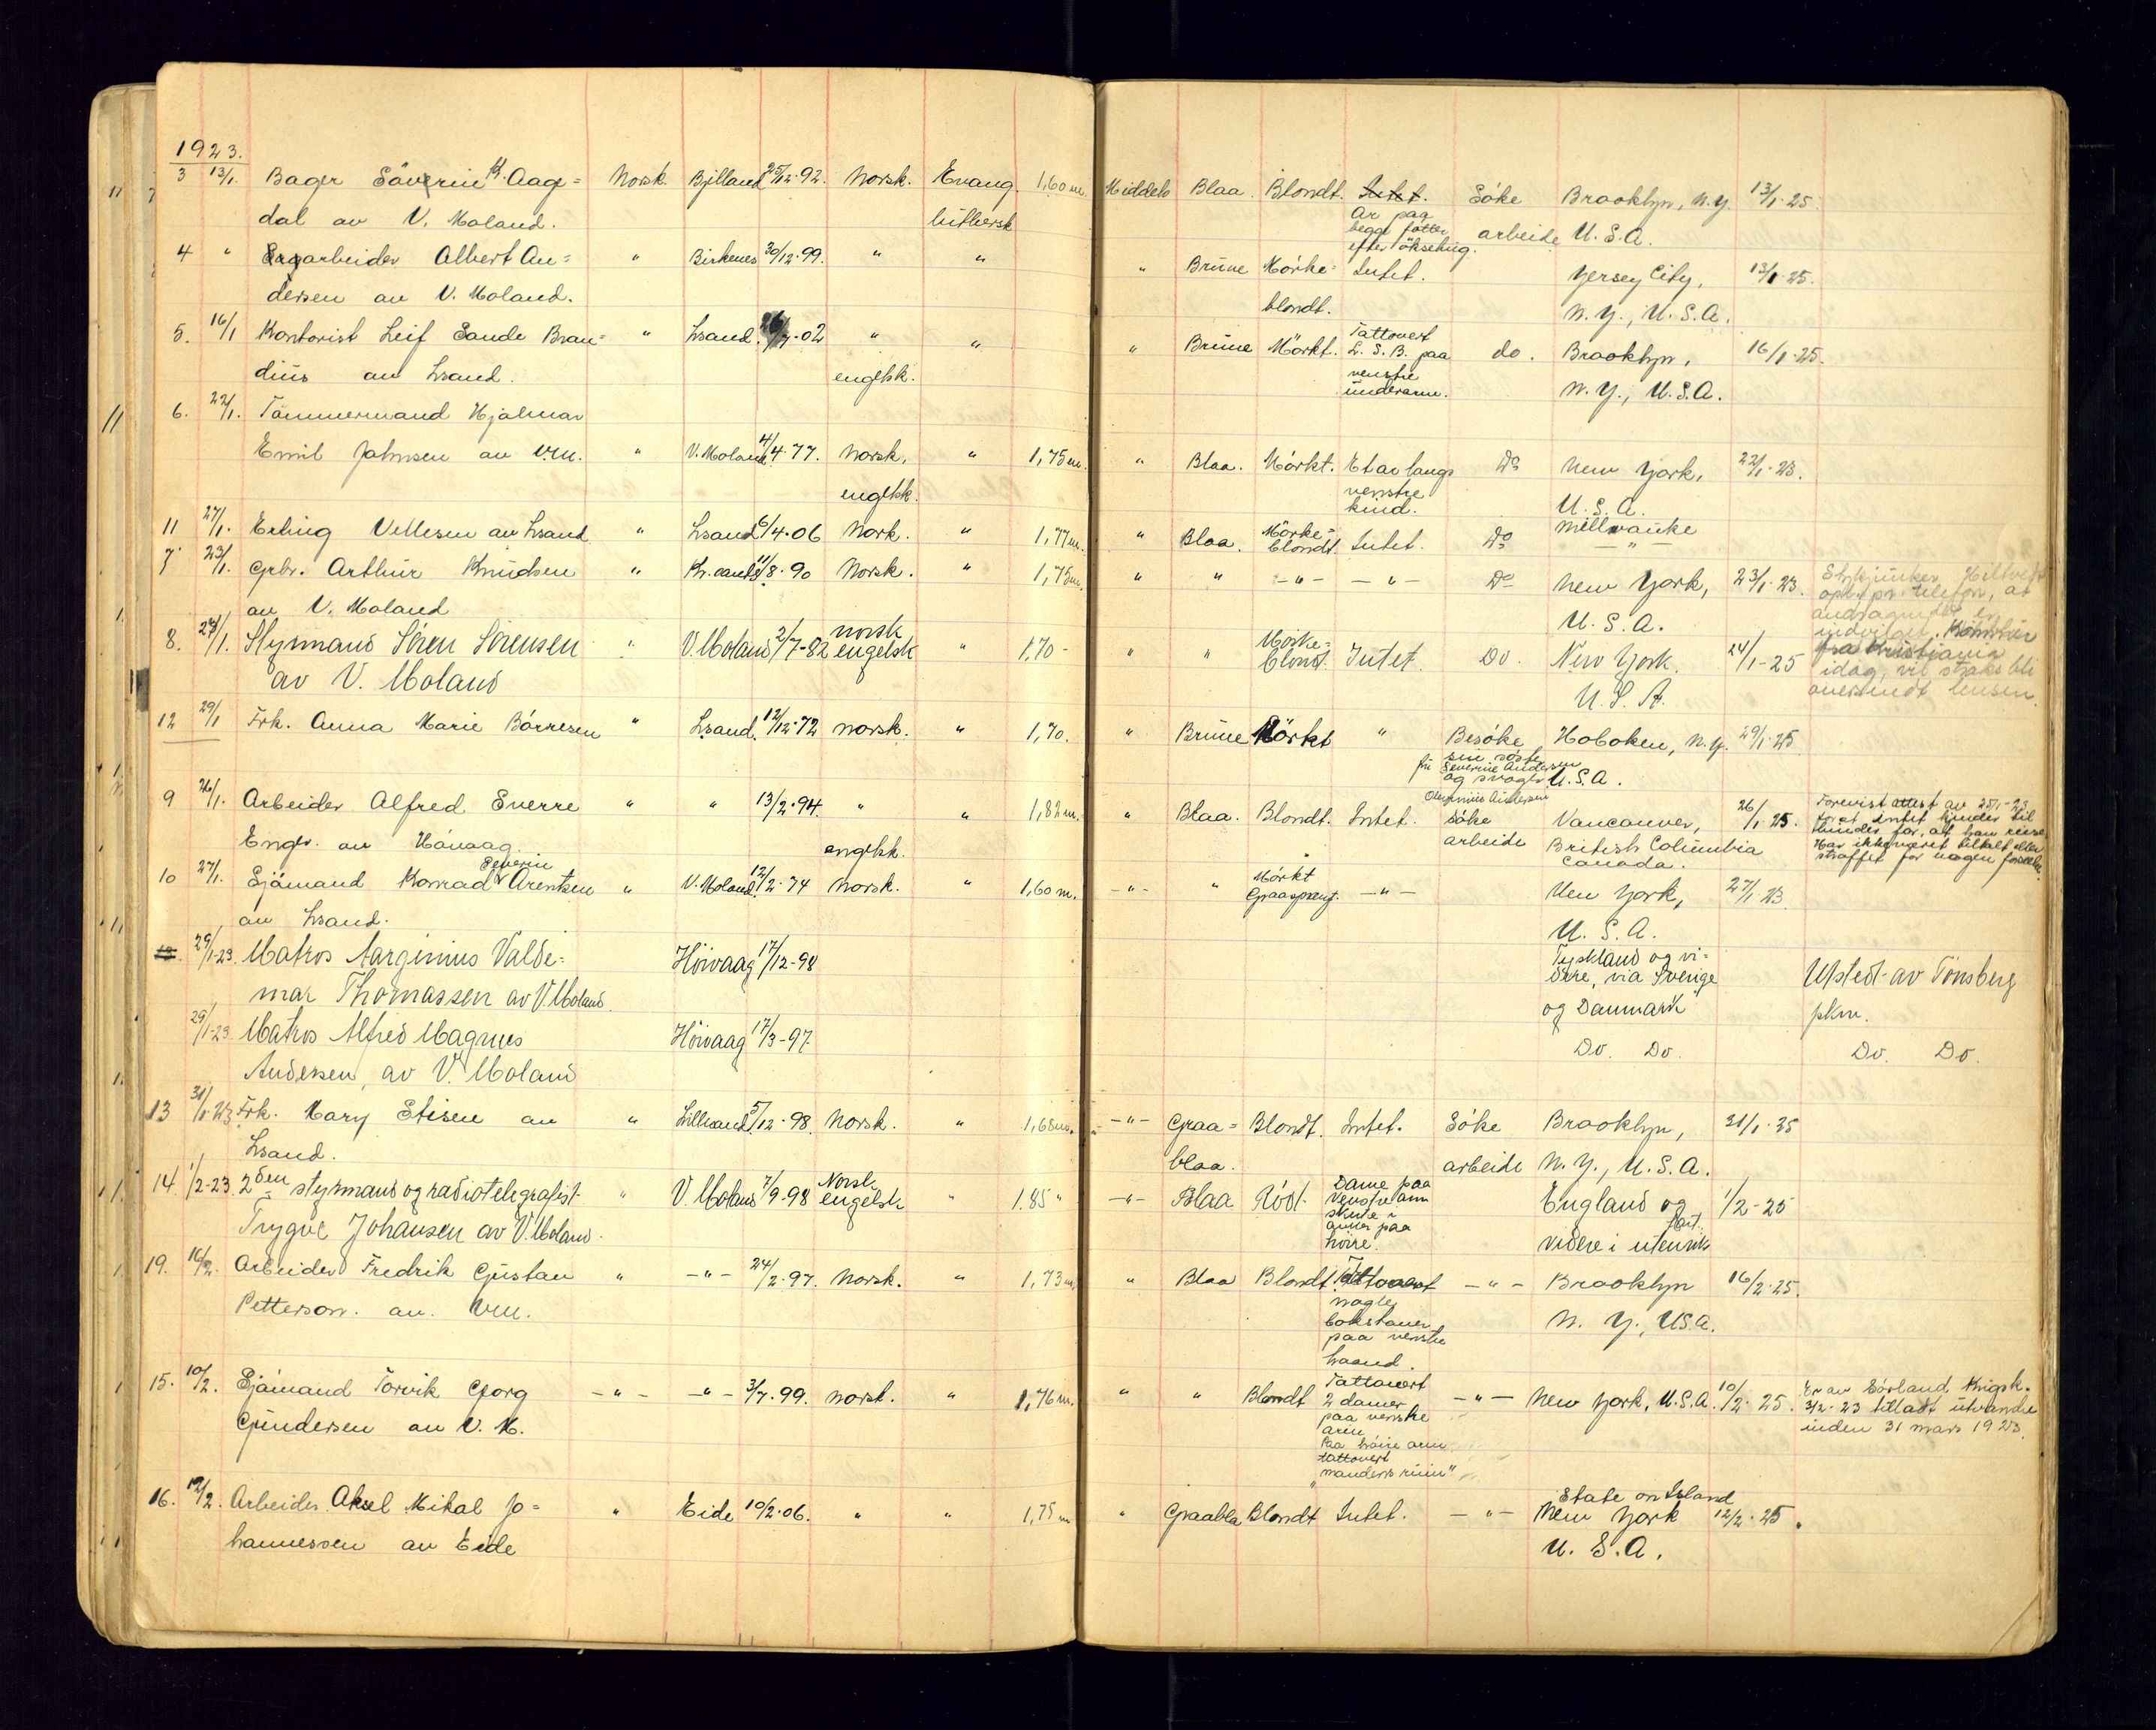 1923.
3 13/1. Bager Säverin K. Aage= Norsk. Bjelland 25/12.92. Norsk. Evang. 1,60 m. Middels Blaa. Blondt. Intet. Söke Brooklyn, N.Y. 13/1.25.
dal av V. Moland. luthersk Ar paa begge fötter efter öksehug. arbeide U.S.A.
4 " Sagarbeider Albert An= " Birkenes 30/12.99. " " " Brune Mörke= Intet. Yersey City, 13/1.25.
dersen av V. Moland. blondt. N.Y., U.S.A.
5. 16/1 Kontorist Leif Sande Bran= " Lsand. 26/7.02 " " " Brune Mörkt. Tattovert L.S.B. paa venstre underarm. do. Brooklyn, 16/1.25.
dius av Lsand. engelsk. N.Y., U.S.A.
6. 22/1. Tömmermand Hjalmar
Emil Johnsen av VM. " V. Moland 4/4.77. Norsk, " 1,75 m. " Blaa. Mörkt. Et ar langs Do New York, 22/1.23.
engelsk. venstre kind. U.S.A.
11 27/1. Erling Vellesen av Lsand " Lsand 6/4.06 Nork. " 1,77 m. " Blaa. Mörke= blondt. Intet. Do Millwauke — " —
7 23/1. Grbr. Arthur Knudsen " Kr.sand S. 11/8.90 Norsk. " 1,75 m. " " — " — — " — Do New York, 23/1.23.
av V. Moland U.S.A.
8. 24/1. Styrmand Sören Sörensen " V. Moland 2/7-82 norsk engelsk " 1,70 - " " Mörke= blond. Intet. Do. New York. 24/1-25 idag, vil straks bli
av V. Moland U.S.A.
12 29/1 Frk. Anna Marie Börresen " Lsand. 12/12.72 norsk. " 1,70. " Brune Mörkt " Besöke Hoboken, N.Y. 29/1.25
sin söster fru Severine Andersen og svoger U.S.A.
Andersen
9 26/1. Arbeider Alfred Sverre " " 13/2.94. " " 1,82 m. " Blaa. Blondt. Intet. söke Vancouver, 26/1.25. Forevist attest av 25/1-23
Enger. av Hövaag. engelsk. arbeide British Columbia Canada. for at intet hinder til hinder for, at han reise. Har ikke været tiltalt eller straffet for nogen
10 27/1. Sjömand Konrad Severin Arentsen " V. Moland. 12/2.74 Norsk. " 1,60 m. — " — " Mörkt Graaspreng. — " — New York, 27/1.23.
av Lsand. U.S.A.
13. 29/1-23. Matros Narginius Valde= Höivaag 17/12-98 Tyskland og vi= dere, via Sverige Utsted av Tönsberg
mar Thomassen av V. Moland. og Danmark pkm.
29/1-23 Matros Alfred Magnus Höivaag 17/3-97. Do. Do. Do. Do.
Andersen, av V. Moland
13 31/1.23 Frk. Mary Stisen av " Lillesand 5/12.98. Norsk. " 1,68 m. — " — Graa= Blondt. Intet. Söke Brooklyn, 31/1.25
Lsand. blaa. arbeide N.Y., U.S.A.
14. 1/2-23. 2den styrmand og radiotelegrafist " V. Moland 7/9-98 Norsk engelsk " 1.85 " — " — Blaa Rödt. Dame paa venstre arm skute i anker paa höire. England og 1/2-25
Trygve Johansen av V. Moland. videre i utenriks fart.
19. 16/2. Arbeider Fredrik Gustav " — " — 24/2.97. Norsk. " 1,73 m. " Blaa Blondt. Tattovert — " — Brooklyn 16/2.25.
Petterson. av. VM. nogle bokstaver paa venstre haand. N.Y., USA.
15. 10/2. Sjömand Torvik Georg — " — — " — 3/7.99. norsk. " 1,76 m. " " Blondt Tattovert — " — New York, U.S.A. 10/2.25. Er av Sörland. Krigsk.
Gundersen av V. M. 2 damer paa venstre arm 3/2-23 tilladt utvandre
Paa höire arm tattovert "manders ruin" inden 31 mars 1923.
16. 12/2. Arbeider. Aksel Mikal Jo= " Eide 10/2.06. " " 1,75 m " Graabla Blondt Intet. — " — State on Island New York 12/2.25.
hannessen av Eide U.S.A.